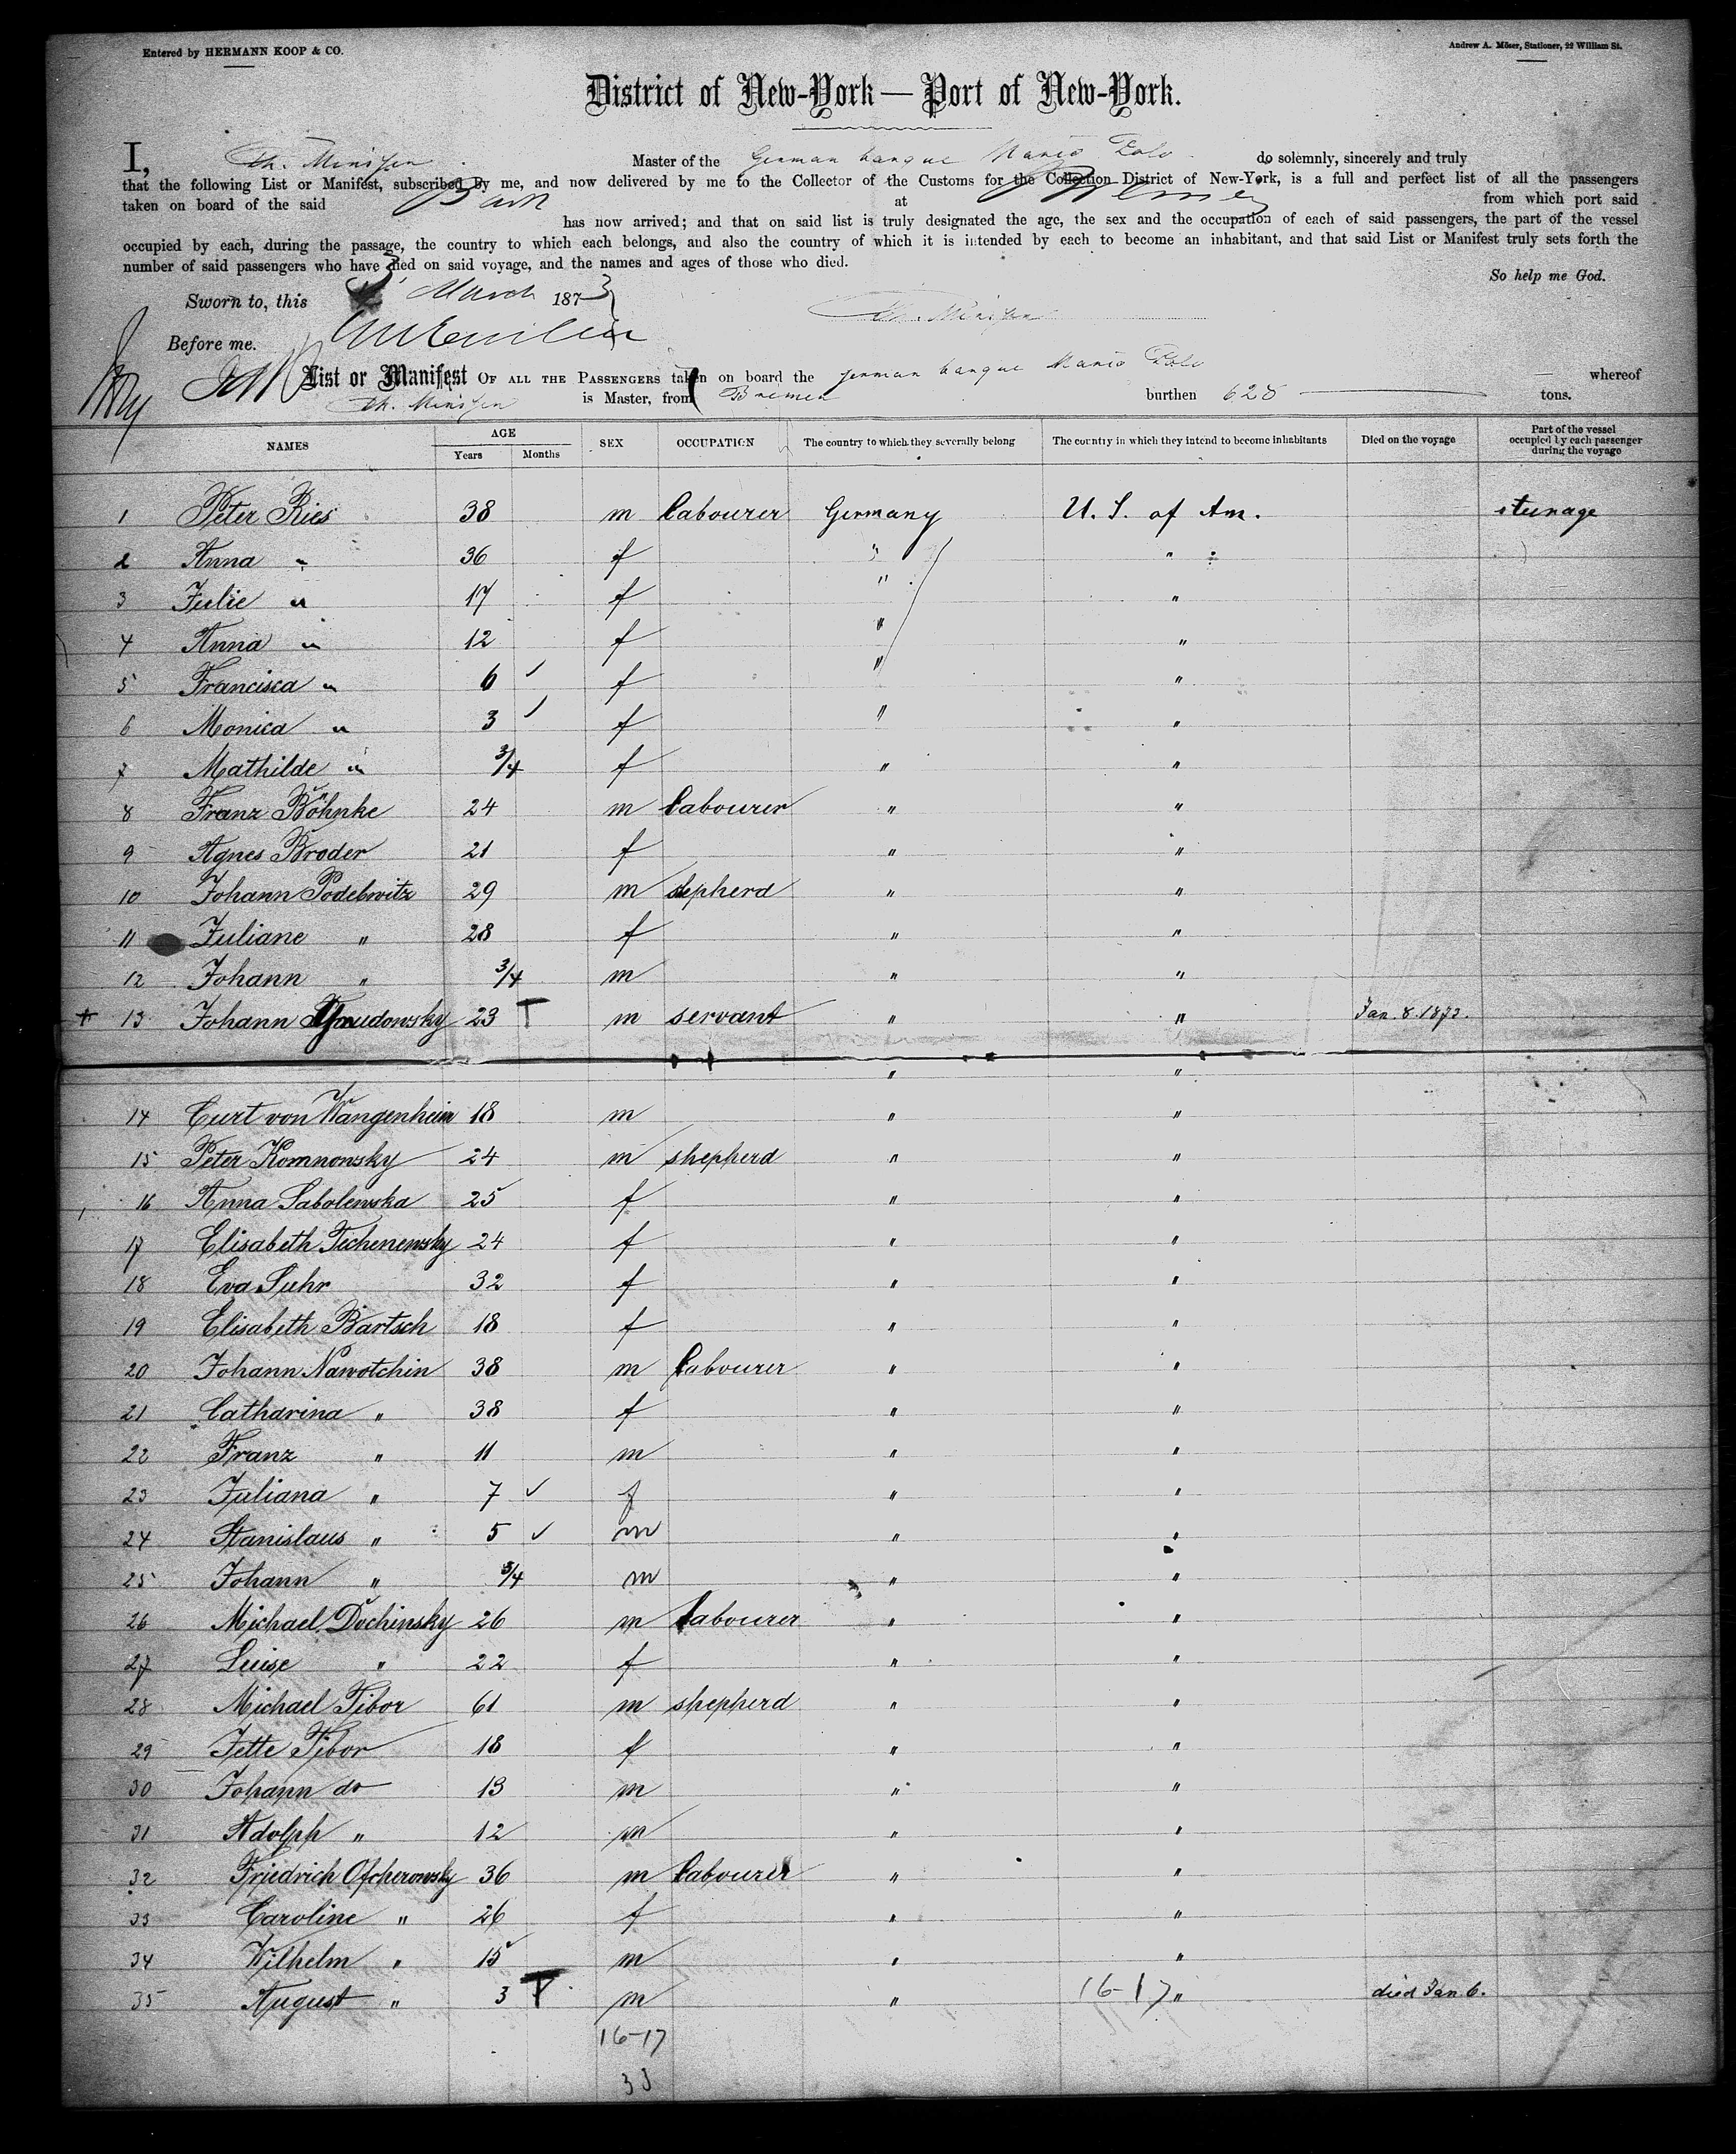 Entered by HERMANN KOOP & CO.
Andrew A. Möser, Stationer, 22 William St.
District of New-York — Port of New-York.
I, Th. Master of the German barque Marco Polo do solemnly, sincerely and truly
that the following List or Manifest, subscribed by me, and now delivered by me to the Collector of the Customs for the Collection District of New-York, is a full and perfect list of all the passengers
taken on board of the said Bark at Bremen from which port said
has now arrived; and that on said list is truly designated the age, the sex and the occupation of each of said passengers, the part of the vessel
occupied by each, during the passage, the country to which each belongs, and also the country of which it is intended by each to become an inhabitant, and that said List or Manifest truly sets forth the
number of said passengers who have died on said voyage, and the names and ages of those who died.
So help me God.
Sworn to, this March 1873
Th.
Before me.
List or Manifest OF ALL THE PASSENGERS taken on board the german barque Marco Polo whereof
Th. is Master, from Bremen burthen 628 tons.
NAMES AGE Years Months SEX OCCUPATION The country to which they severally belong The country in which they intend to become inhabitants Died on the voyage Part of the vessel occupied by each passenger during the voyage
1 Peter Ries 38 m labourer Germany U. S. of Am. steerage
2 Anna " 36 f " "
3 Julie " 17 f " "
4 Anna " 12 f " "
5 Francisca " 6 ✓ f " "
6 Monica " 3 ✓ f " "
7 Mathilde " 3/4 f " "
8 Franz Böhnke 24 m labourer " "
9 Agnes Broder 21 f " "
10 Johann Podebwitz 29 m shepherd " "
11 Juliane " 28 f " "
12 Johann " 3/4 m " "
+ 13 Johann 23 T m servant " " Jan. 8. 1873.
" "
14 Curt von Wangenheim 18 m " "
15 Peter Komnonsky 24 m shepherd " "
16 Anna Sabolewska 25 f " "
17 Elisabeth Techenewsky 24 f " "
18 Eva Suhr 32 f " "
19 Elisabeth Bartsch 18 f " "
20 Johann Nawotchin 38 m labourer " "
21 Catharina " 38 f " "
22 Franz " 11 m " "
23 Juliana " 7 ✓ f " "
24 Stanislaus " 5 ✓ m " "
25 Johann " 3/4 m " "
26 Michael Dochinsky 26 m labourer " "
27 Luise " 22 f " "
28 Michael Tibor 61 m shepherd " "
29 Jette Tibor 18 f " "
30 Johann do 13 m " "
31 Adolph " 12 m " "
32 Friedrich Ofcherowsky 36 m labourer " "
33 Caroline " 26 f " "
34 Wilhelm " 15 m " "
35 August " 3 T m " 16-17 " died Jan. 6.
16-17
33